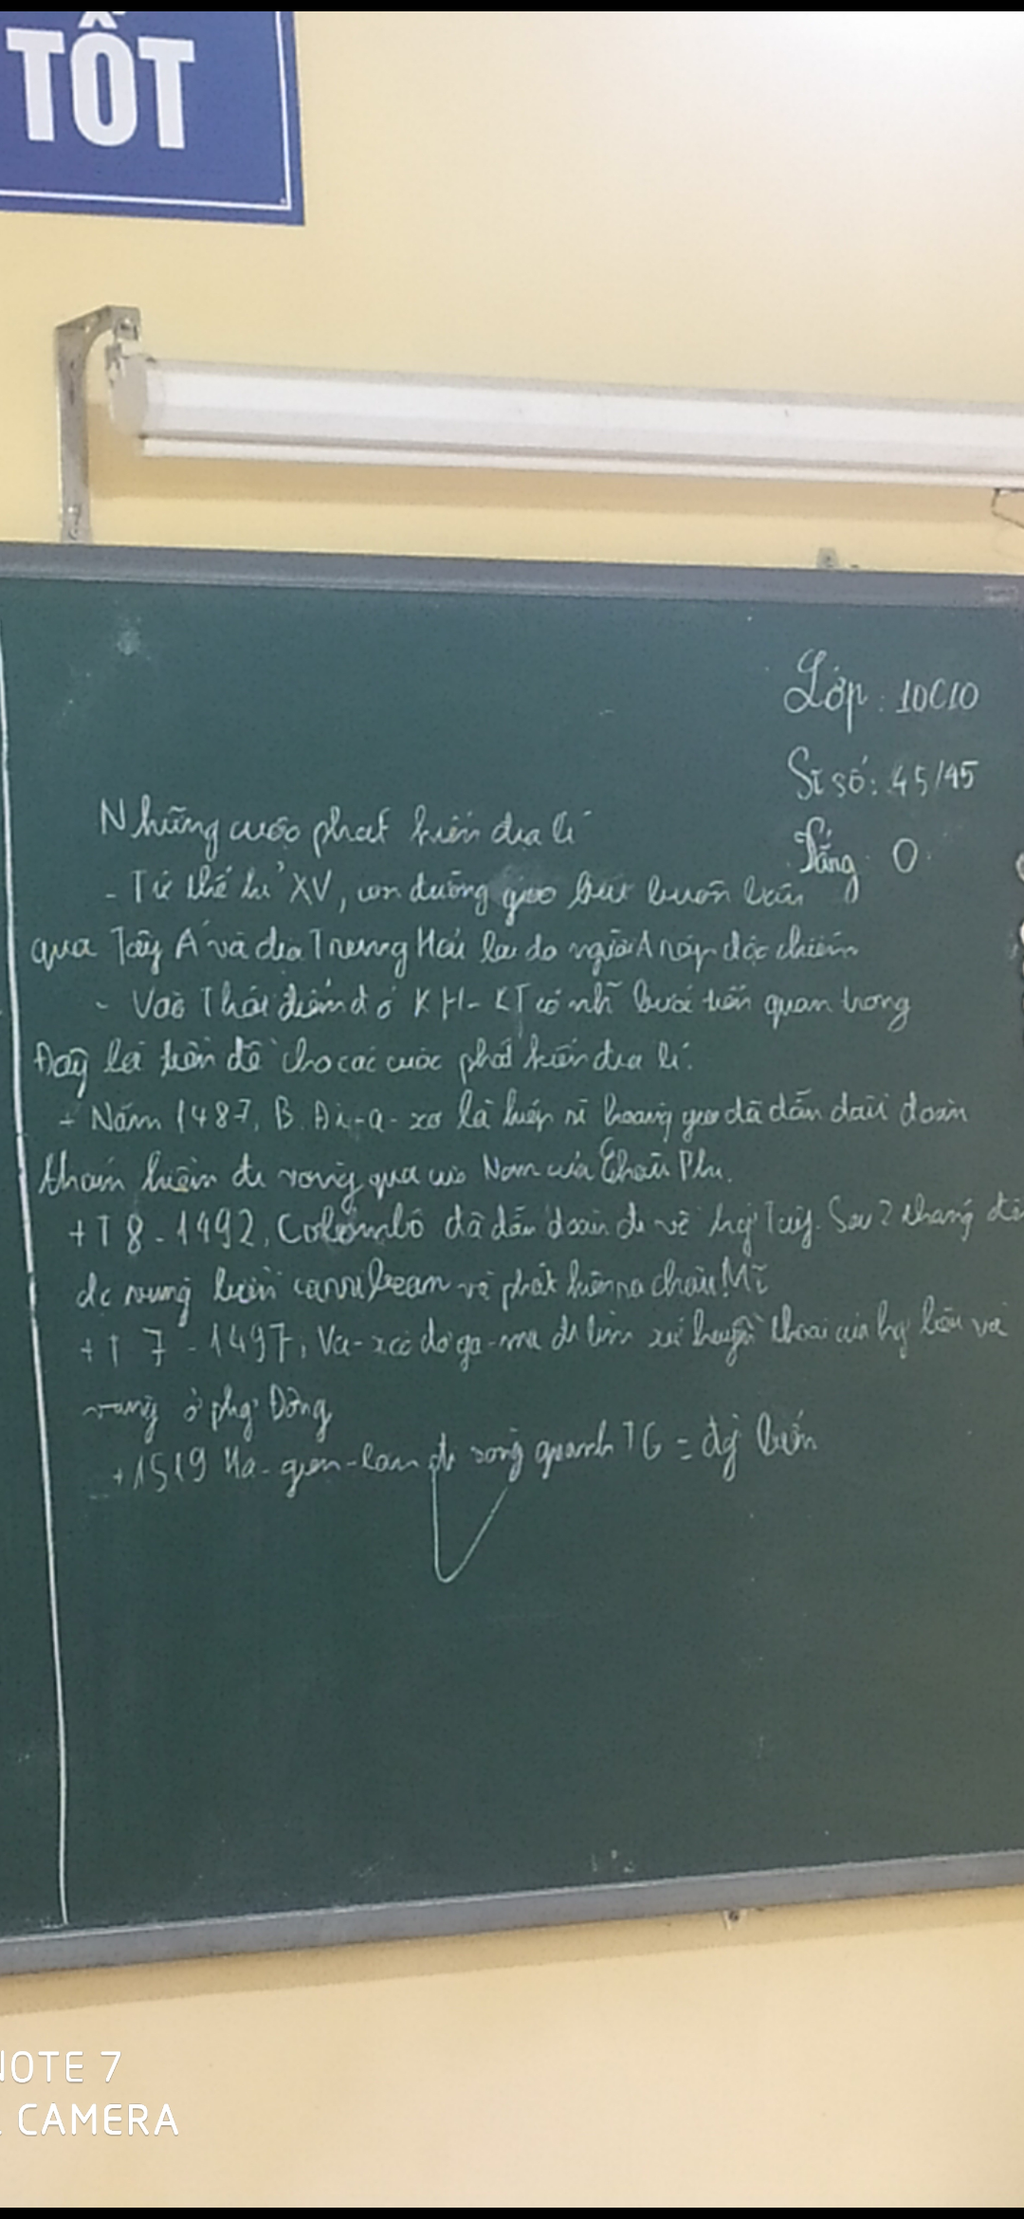 TỐT
Lớp: 10C10
Sĩ số: 45/45
Vắng: 0
Những cuộc phát kiến địa lí
- Từ thế kỉ XV, con đường giao lưu buôn bán
qua Tây Á và địa Trung Hải lại do người A rập độc chiếm
- Vào Thời điểm đó KH-KT có nh~ bước tiến quan trọng
Đây là tiền đề cho các cuộc phát kiến địa lí.
+ Năm 1487, B. Đi-a-xơ là hiệp sĩ hoàng gia đã dẫn đầu đoàn
thám hiểm đi vòng qua cực Nam của Châu Phi.
+ T 8-1492, Colombô đã dẫn đoàn đi về hg' Tây. Sau 2 tháng đến
đc vùng biển carribeam và phát hiện ra châu Mĩ
+ T 7-1497, Va-xcô đơ ga-ma đi tìm xứ huyền thoại của hg' liệu và
vàng ở phg' Đông
+ 1519 Ma-gien-lan đi vòng quanh TG = đg' biển
NOTE 7
CAMERA